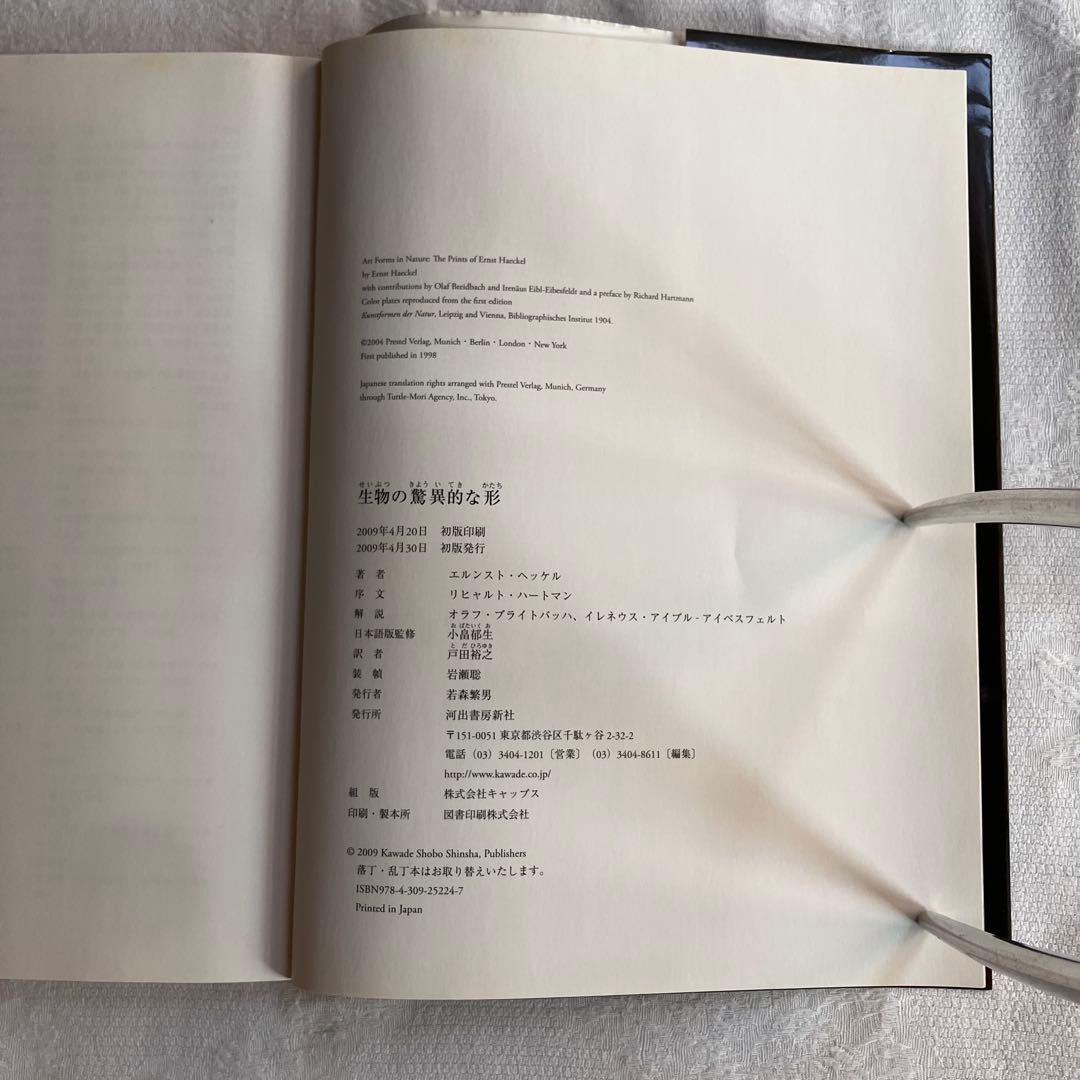 Art Forms in Nature: The Prints of Ernst Haeckel
by Ernst Haeckel
with contributions by Olaf Breidbach and Irenäus Eibl-Eibesfeldt and a preface by Richard Hartmann
Color plates reproduced from the first edition
Kunstformen der Natur, Leipzig and Vienna, Bibliographisches Institut 1904.
©2004 Prestel Verlag, Munich・Berlin・London・New York
First published in 1998
Japanese translation rights arranged with Prestel Verlag, Munich, Germany
through Tuttle-Mori Agency, Inc., Tokyo.
せいぶつ きょう い てき かたち
生物の驚異的な形
2009年4月20日 初版印刷
2009年4月30日 初版発行
著 者 エルンスト・ヘッケル
序 文 リヒャルト・ハートマン
解 説 オラフ・ブライトバッハ、イレネウス・アイブル‐アイベスフェルト
お ばたいく お
日本語版監修 小畠郁生
と だ ひろゆき
訳 者 戸田裕之
装 幀 岩瀬聡
発行者 若森繁男
発行所 河出書房新社
〒151-0051 東京都渋谷区千駄ヶ谷 2-32-2
電話（03）3404-1201〔営業〕（03）3404-8611〔編集〕
http://www.kawade.co.jp/
組 版 株式会社キャップス
印刷・製本所 図書印刷株式会社
© 2009 Kawade Shobo Shinsha, Publishers
落丁・乱丁本はお取り替えいたします。
ISBN978-4-309-25224-7
Printed in Japan